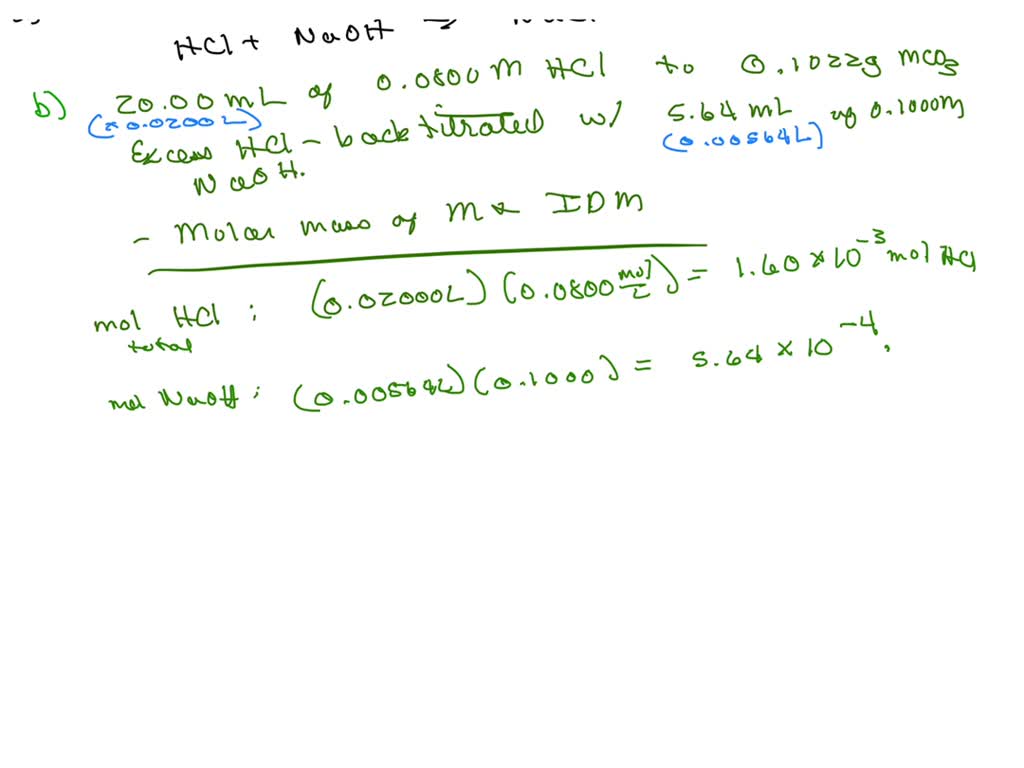 HCl + NaOH
b) 20.00 mL of 0.0800 M HCl to 0.1022g MCO3
(0.0200L)
Excess HCl - back titrated w/ 5.64 mL of 0.1000M
(0.00564L)
NaOH.
- Molar mass of M & IDM
mol HCl : (0.02000L) (0.0800 mol/L) = 1.60 × 10^-3 mol HCl
total
mol NaOH : (0.00564L) (0.1000) = 5.64 × 10^-4,